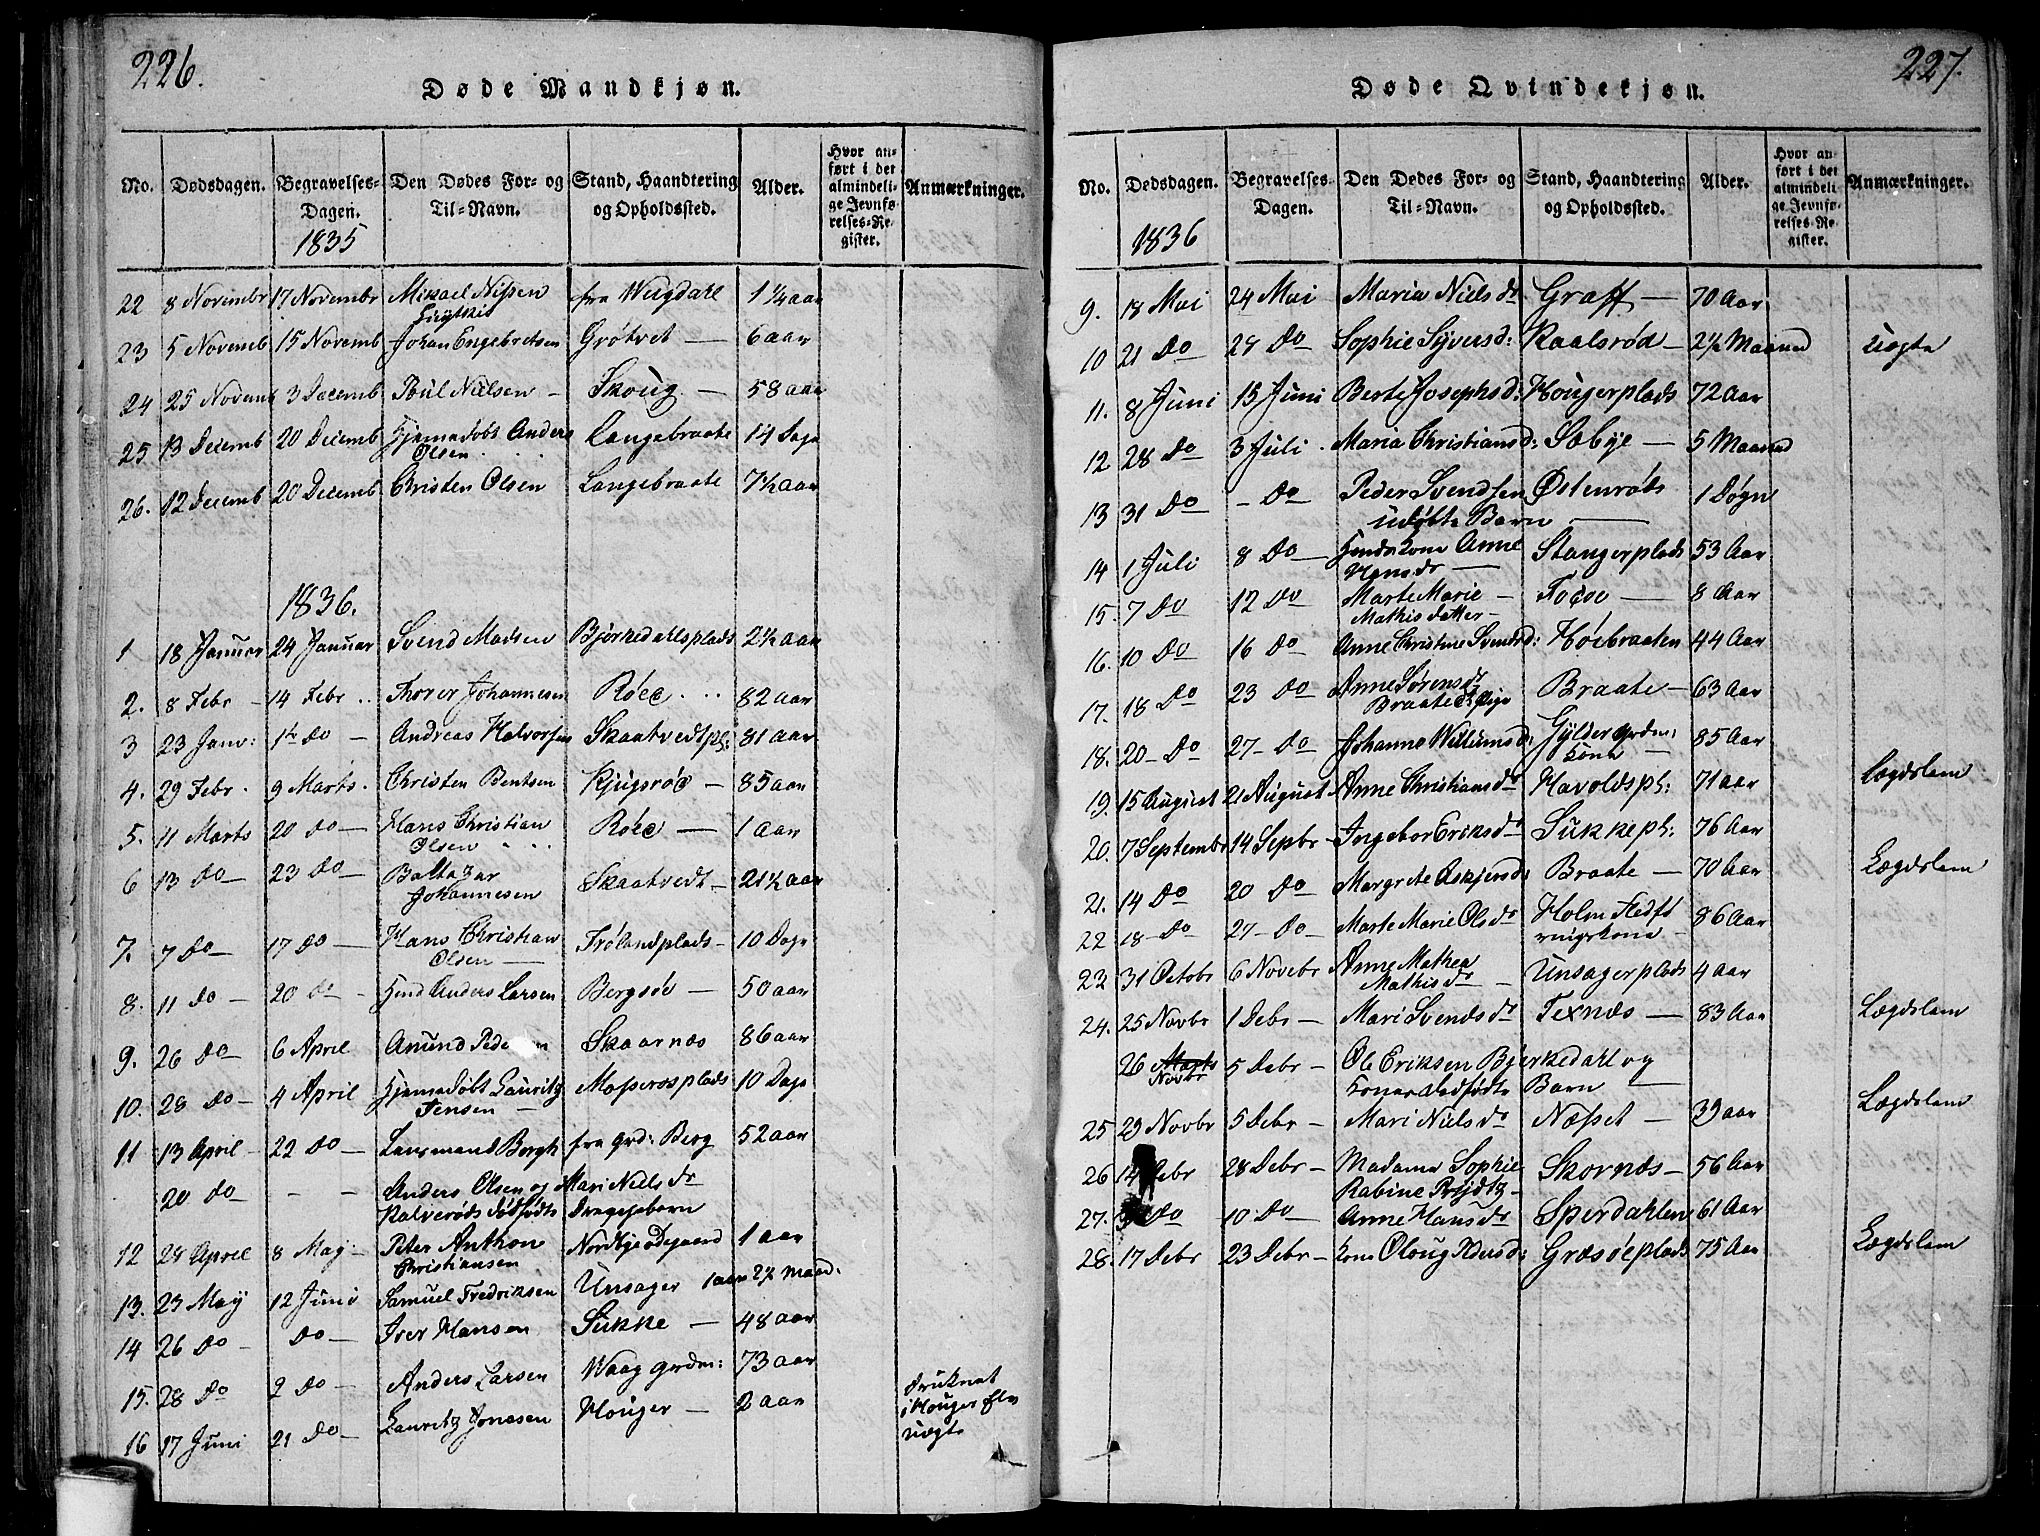 226.
Døde Mandkjøn.
No. Dødsdagen. Begravelses-Dagen. Den Dødes For- og Til-Navn. Stand, Haandtering og Opholdssted. Alder. Hvor anført i det almindelige Jevnførelses-Register. Anmærkninger.
1835
22 8 Novembr 17 Novembr Mikael Nissen fra Wugdahl 1 1/4 aar
23 5 Novemb 15 Novemb Johan Engebretsen Grøtvet — 6 aar
24 25 Novemb 3 Decemb Poul Nielsen – Skoug — 58 aar
25 13 Decemb 20 Decemb Hjemedøbt Anders Langebraate 14 Dage
Olsen
26. 12 Decemb 20 Decemb Christen Olsen Langebraate 7 1/2 aar
1836.
1 18 Januar 24 Januar Svend Madsen Bjørkedahlsplads 2 1/2 aar
2. 8 Febr – 14 Febr Thorer Johannesen Røed 82 aar
3 23 Janv: 1te do – Andreas Halvorsen Skaatvedtpl: 81 aar
4. 29 Febr. 9 Marts. Christen Bentsen 85 aar
5. 11 Marts 20 do — Hans Christian Røed — 1 aar
Olsen
6 13 do — 23 do — Baltazar Skaatvedt – 21 1/2 aar
Johannesen
7. 7 do — 17 do — Hans Christian Frølandplads – 10 Dage
Olsen —
8. 11 do — 20 do – Anders Larsen 50 aar
9. 26 do — 6 April Anund Skaarnæs 86 aar
10. 28 do — 4 April Hjemedøbt Lauritz plads 10 Dage
Jensen —
11 13 April – 22 do — Lansmand Borgh fra grd: Berg 52 aar
20 do – – Anders Olsen og Mari Nielsdr
Kalverøds dødfødte Drengebarn
12 28 April 8 May – Peter Anthon 1 aar
Christiansen
13. 23 May 12 Juni Samuel Fredriksen Unsager 1 aar 2 1/2 maad:
14 26 do — do — Iver Hansen Sukke — 48 aar
15. 28 do 2 do — Anders Larsen Waag grdm: 73 aar
16 17 Juni 21 do — Lauritz Jonasen Houger — 2 aar druknet
i Houger Elv
uægte
227.
Døde Qvindekjøn.
No. Dødsdagen. Begravelses Dagen. Den Dødes For- og Til-Navn. Stand, Haandtering og Opholdssted. Alder. Hvor anført i det almindelige Jevnførelses-Register. Anmærkninger.
1836
9. 18 Mai 24 Mai Maria Nielsdr Graff — 70 Aar
10 21 do 28 do Sophie Syversd: Kaalsrød – 2 1/2 Maaned uægte
11. 8 Juni 15 Juni Berte Josephsd: Hougerplads 72 Aar
12 28 do 3 Juli Maria Christiansd: Sæbye — 5 Maaned
13 31 do – do Peder Svendsen Østenrøds 1 Døgn
udøbte Barn —
14 1 Juli 8 do — kone Anne Stangerplads 53 Aar
Hansdr —
15. 7 do 12 do Marte Marie – — 8 Aar
Mathisdatter –
16. 10 do 16 do Anne Christine Svendsd: Høiebraaten 44 Aar
17. 18 do 23 do Anne Sørensdr Braate – 63 Aar
Braate
18. 20 – do 27 – do Johanne Willumsd: Gylder grdm: 85 Aar
kone
19. 15 August 21 August Anne Christiansdr Havoldspl: 71 aar Lægdslem
20. 7 Septembr 14 Sepbr – Ingebor Eriksdr Sukkepl: 76 Aar
21. 14 do 20 do Margrete Askjersdr Braate — 70 Aar Lægdslem
22 18 – do 27 – do Marte Marie Olsdr Holm 86 Aar
22 31 Octobr 6 Novebr Anne Mathea Unsagerplads 4 aar
Mathisdr —
24. 25 Novbr 1 Debr — Mari Svendsdr Texnæs — 83 Aar Lægdslem
26 Marts Novbr 5 Debr – Ole Eriksen Bjerkedahl og
Kones dødfødte Barn —
25 29 Novbr 5 Debr – Mari Nielsdr Næsset — 39 aar Lægdslem
26 14 Debr 28 Debr – Madame Sophie Skornæs – 56 Aar
Rabine Prydtz –
27. do 10 do — Anne Hansdr Sperdahlen 61 Aar
28. 17 Debr 23 Debr – kone Oloug Græsøeplads 75 Aar Lægdslem